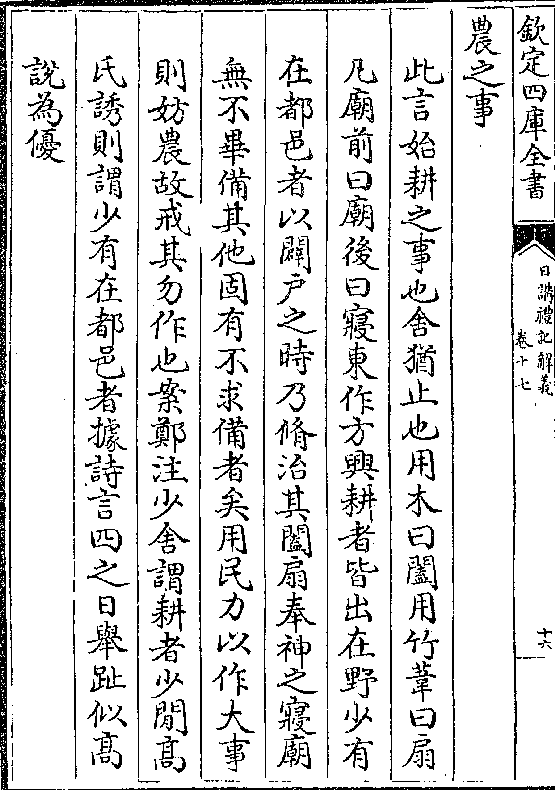 欽定四庫全書
日講禮記解義
卷十七
十六
農之事
此言始耕之事也舍猶止也用木曰闔用竹葦曰扇
凡廟前曰廟後曰寢東作方興耕者皆出在野少有
在都邑者以闢户之時乃脩治其闔扇奉神之寢廟
無不畢備其他固有不求備者矣用民力以作大事
則妨農故戒其勿作也案鄭注少舍謂耕者少閒高
氏誘則謂少有在都邑者據詩言四之日舉趾似高
說為優